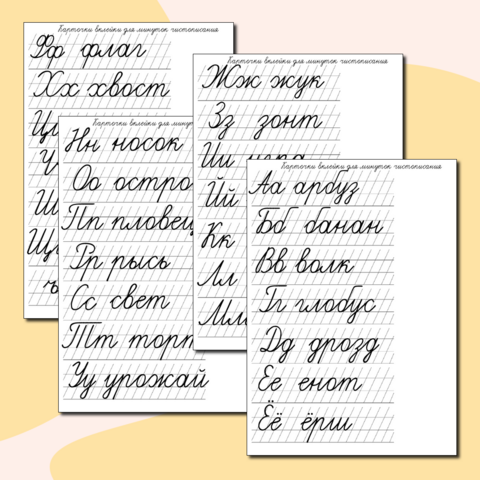 Карточки вклейки для минуток чистописания
Фф флаг
Хх хвост
Карточки вклейки для минуток чистописания
Нн носок
Оо остро
Пп пловец
Рр рысь
Сс свет
Тт торт
Уу урожай
Карточки вклейки для минуток чистописания
Жж жук
Зз зонт
Ии игра
Йй
Кк
Лл
Мм
Карточки вклейки для минуток чистописания
Аа арбуз
Бб банан
Вв волк
Гг глобус
Дд дрозд
Ее енот
Ёё ёрш